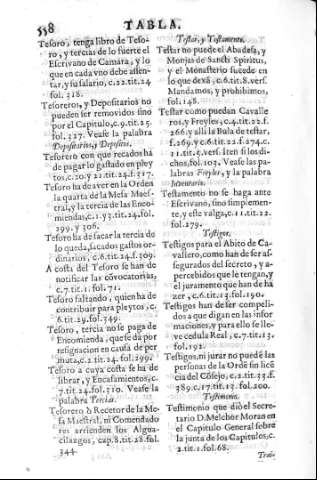 558 TABLA.
Tesoro, tenga libro de Teso-
ro, y tercias de lo suerte el
Escrivano de Camara, y lo
que en cada vno debe assen-
tar, y su salario, c.22.tit.24
fol. 318.
Tesoreros, y Depositarios no
pueden ser removidos sino
por el Capitulo, c.9.tit.25.
fol.327. Vease la palabra
Depositarios, y Depositos.
Tesorero con que recados ha
de pagar lo gastado en pley
tos, c.20.y 21.tit.24.f.317.
Tesoro ha de aver en la Orden
la quarta de la Mesa Maes-
tral, y la tercia de las Enco-
miendas, c.1.y 3.tit.24.fol.
299. y 306.
Tesoro ha de sacar la tercia de
lo queda, sacados gastos or-
dinarios, c.6.tit.24.f.309.
A costa del Tesoro se han de
notificar las cōvocatorias,
c.7.tit.1.fol.71.
Tesoro faltando, quien ha de
contribuir para pleytos, c.
6.tit.29.fol.349.
Tesoro, tercia no se paga de
Encomienda, que se dà por
resignacion en causa de per
muta, c.2.tit.24.fol.299.
Tesoro a cuya costa se ha de
librar, y Encasamientos, c.
7.tit.24.fol.310. Vease la
palabra Tercias.
Tesorero ò Receptor de la Me-
sa Maestral, ni Comendado
res arrienden los Algua-
cilazgos, cap.8.tit.28.fol.
344.
Testar, y Testamento.
Testar no puede el Abadesa, y
Monjas de Sancti Spiritus,
y el Monasterio sucede en
lo que dexà, c.6.tit.8.vers.
Mandamos, y prohibimos,
fol.148.
Testar como puedan Cavalle
ros, y Freyles, c.4.tit.22.f.
266. y alli la Bula de testar,
f.269. y c.6.tit.22.f.274.c.
21.tit.5.vers. Iten si los di-
chos, fol.103. Vease las pa-
labras Freyles, y la palabra
Inventario.
Testamento no se haga ante
Escrivano, sino simplemen-
te, y este valga, c.11.tit.22.
fol.279.
Testigos.
Testigos para el Abito de Ca-
vallero, como han de ser as-
segurados del secreto, y a-
percebidos que le tengan, y
el juramento que han de ha
zer, c.6.tit.13.fol.190.
Testigos han de ser compeli-
dos a que digan en las infor
maciones, y para ello se lle-
ve cedula Real, c.7.tit.13.
fol.192.
Testigos, ni jurar no puedē las
personas de la Ordē sin licē
cia del Cōsejo, c.2.tit.35.f.
389.c.17.tit.13.fol.200.
Testimonio.
Testimonio que diò el Secre-
tario D. Melchor Moran en
el Capitulo General sobre
la junta de los Capitulos, c.
2.tit.1.fol.68.